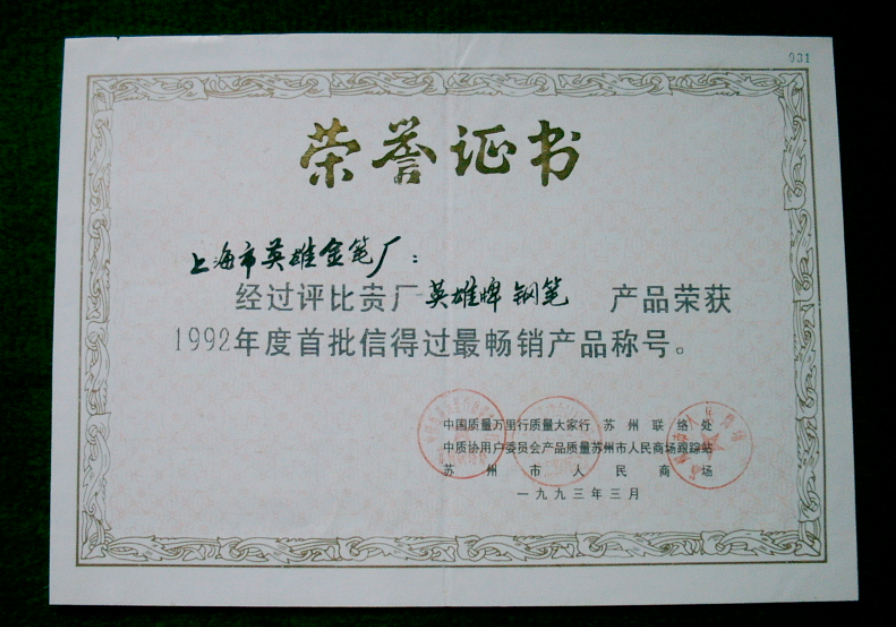 031
荣誉证书
上海市英雄金笔厂：
经过评比贵厂英雄牌钢笔 产品荣获
1992年度首批信得过最畅销产品称号。
中国质量万里行质量大家行 苏州联络处
中质协用户委员会产品质量苏州市人民商场跟踪站
苏州市人民商场
一九九三年三月